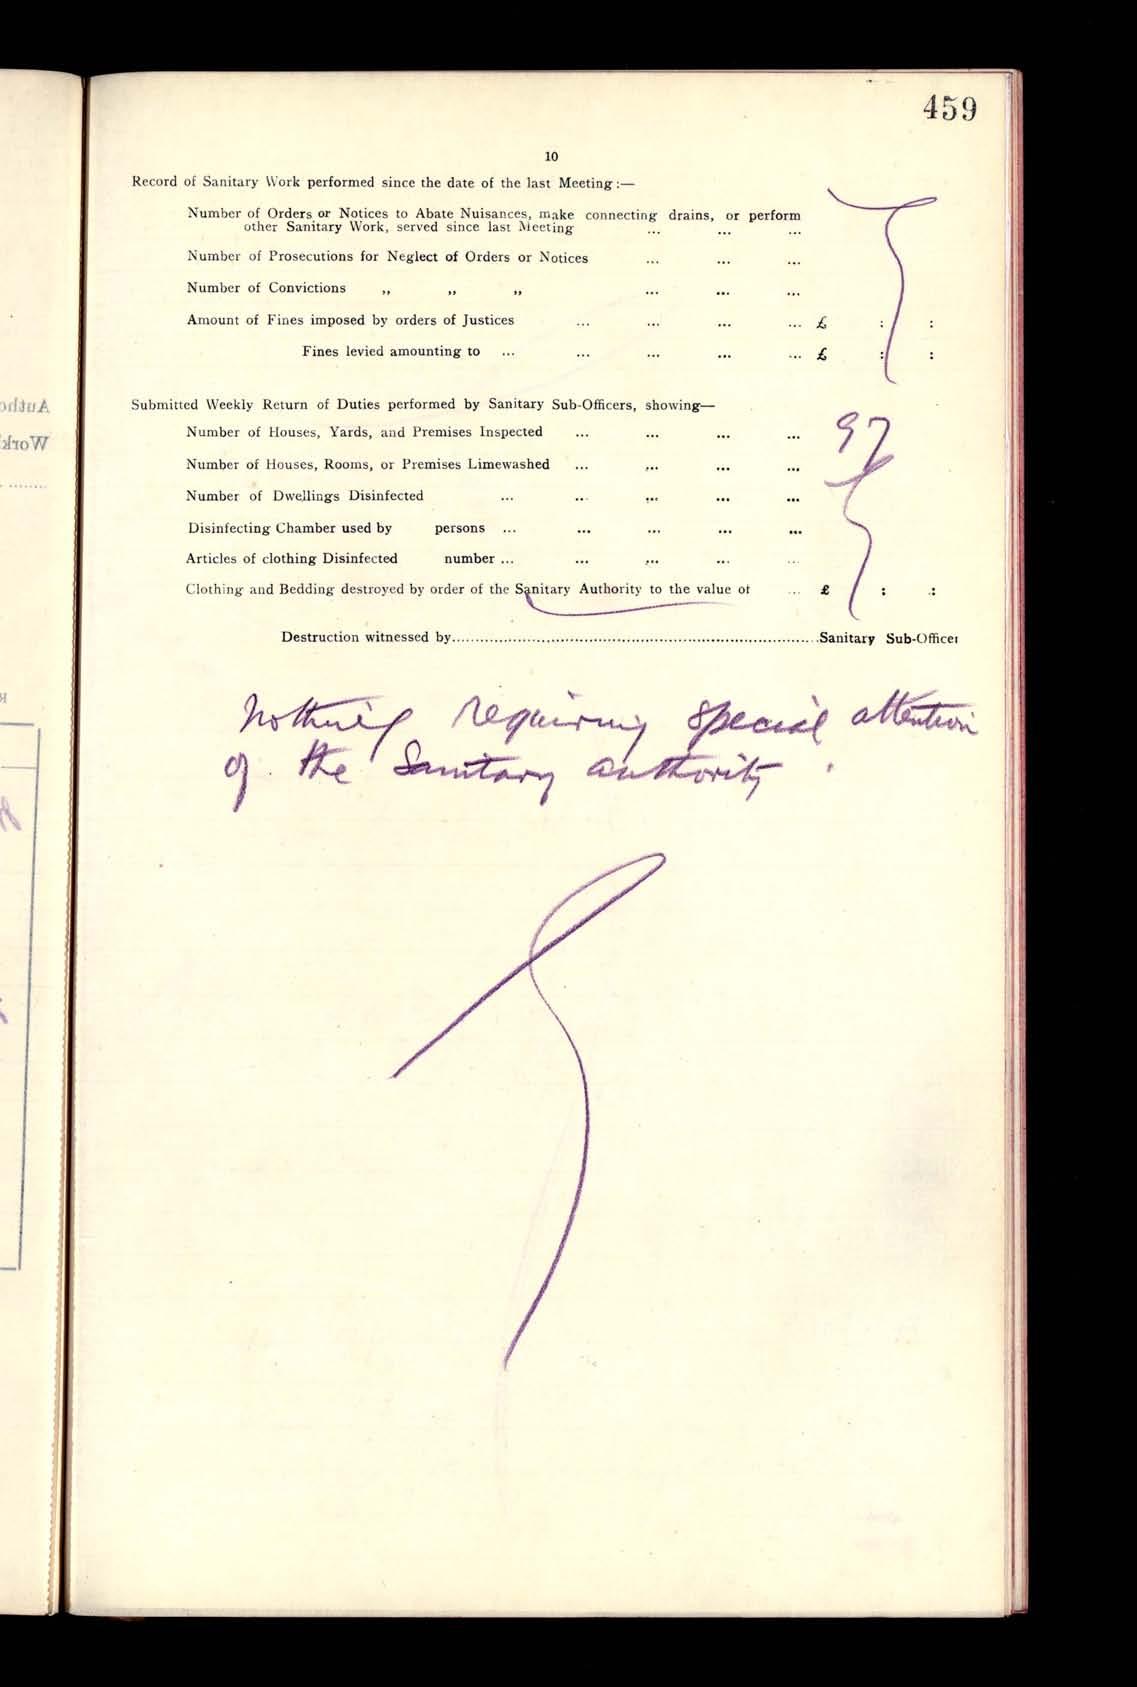 459
10
Record of Sanitary Work performed since the date of the last Meeting:—
Number of Orders or Notices to Abate Nuisances, make connecting drains, or perform
other Sanitary Work, served since last Meeting ... ... ...
Number of Prosecutions for Neglect of Orders or Notices ... ... ...
Number of Convictions ,, ,, ,, ... ... ...
Amount of Fines imposed by orders of Justices ... ... ... ... £ : :
Fines levied amounting to ... ... ... ... ... £ : :
Submitted Weekly Return of Duties performed by Sanitary Sub-Officers, showing—
Number of Houses, Yards, and Premises Inspected ... ... ... ... 97
Number of Houses, Rooms, or Premises Limewashed ... ... ... ...
Number of Dwellings Disinfected ... ... ... ... ...
Disinfecting Chamber used by persons ... ... ... ... ...
Articles of clothing Disinfected number ... ... ... ... ...
Clothing and Bedding destroyed by order of the Sanitary Authority to the value of ... £ : :
Destruction witnessed by..............................Sanitary Sub-Officer
Nothing requiring special attention
of the Sanitary authority.